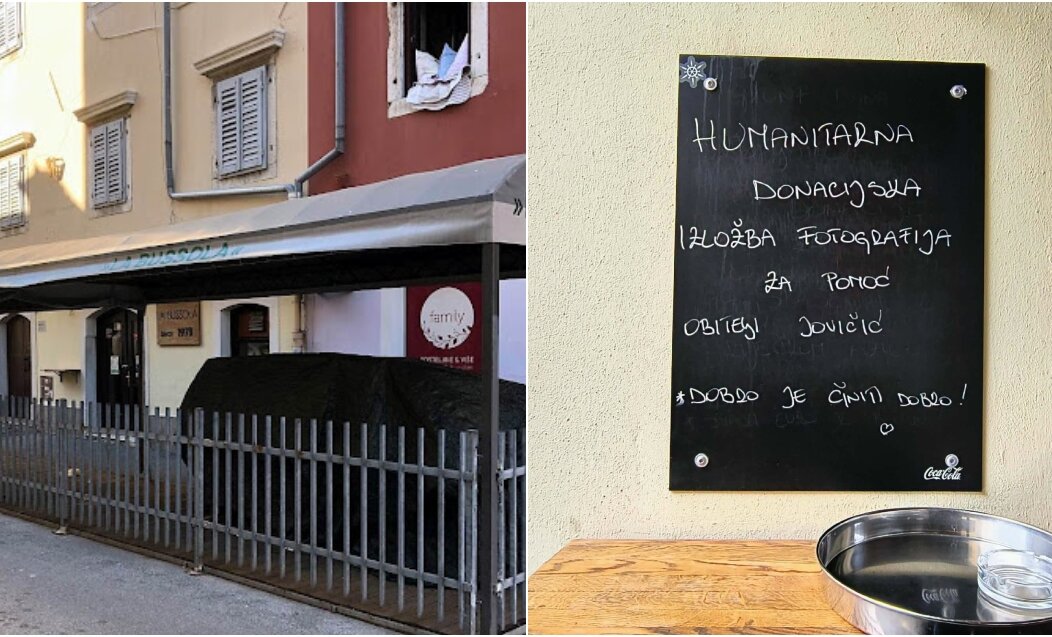 LA BUSSOLA
BUSSOLA
1973
family
HUMANITARNA
DONACIJSKA
IZLOŽBA FOTOGRAFIJA
ZA POMOĆ
OBITELJI JOVIČIĆ
*DOBRO JE ČINITI DOBRO!
Coca-Cola